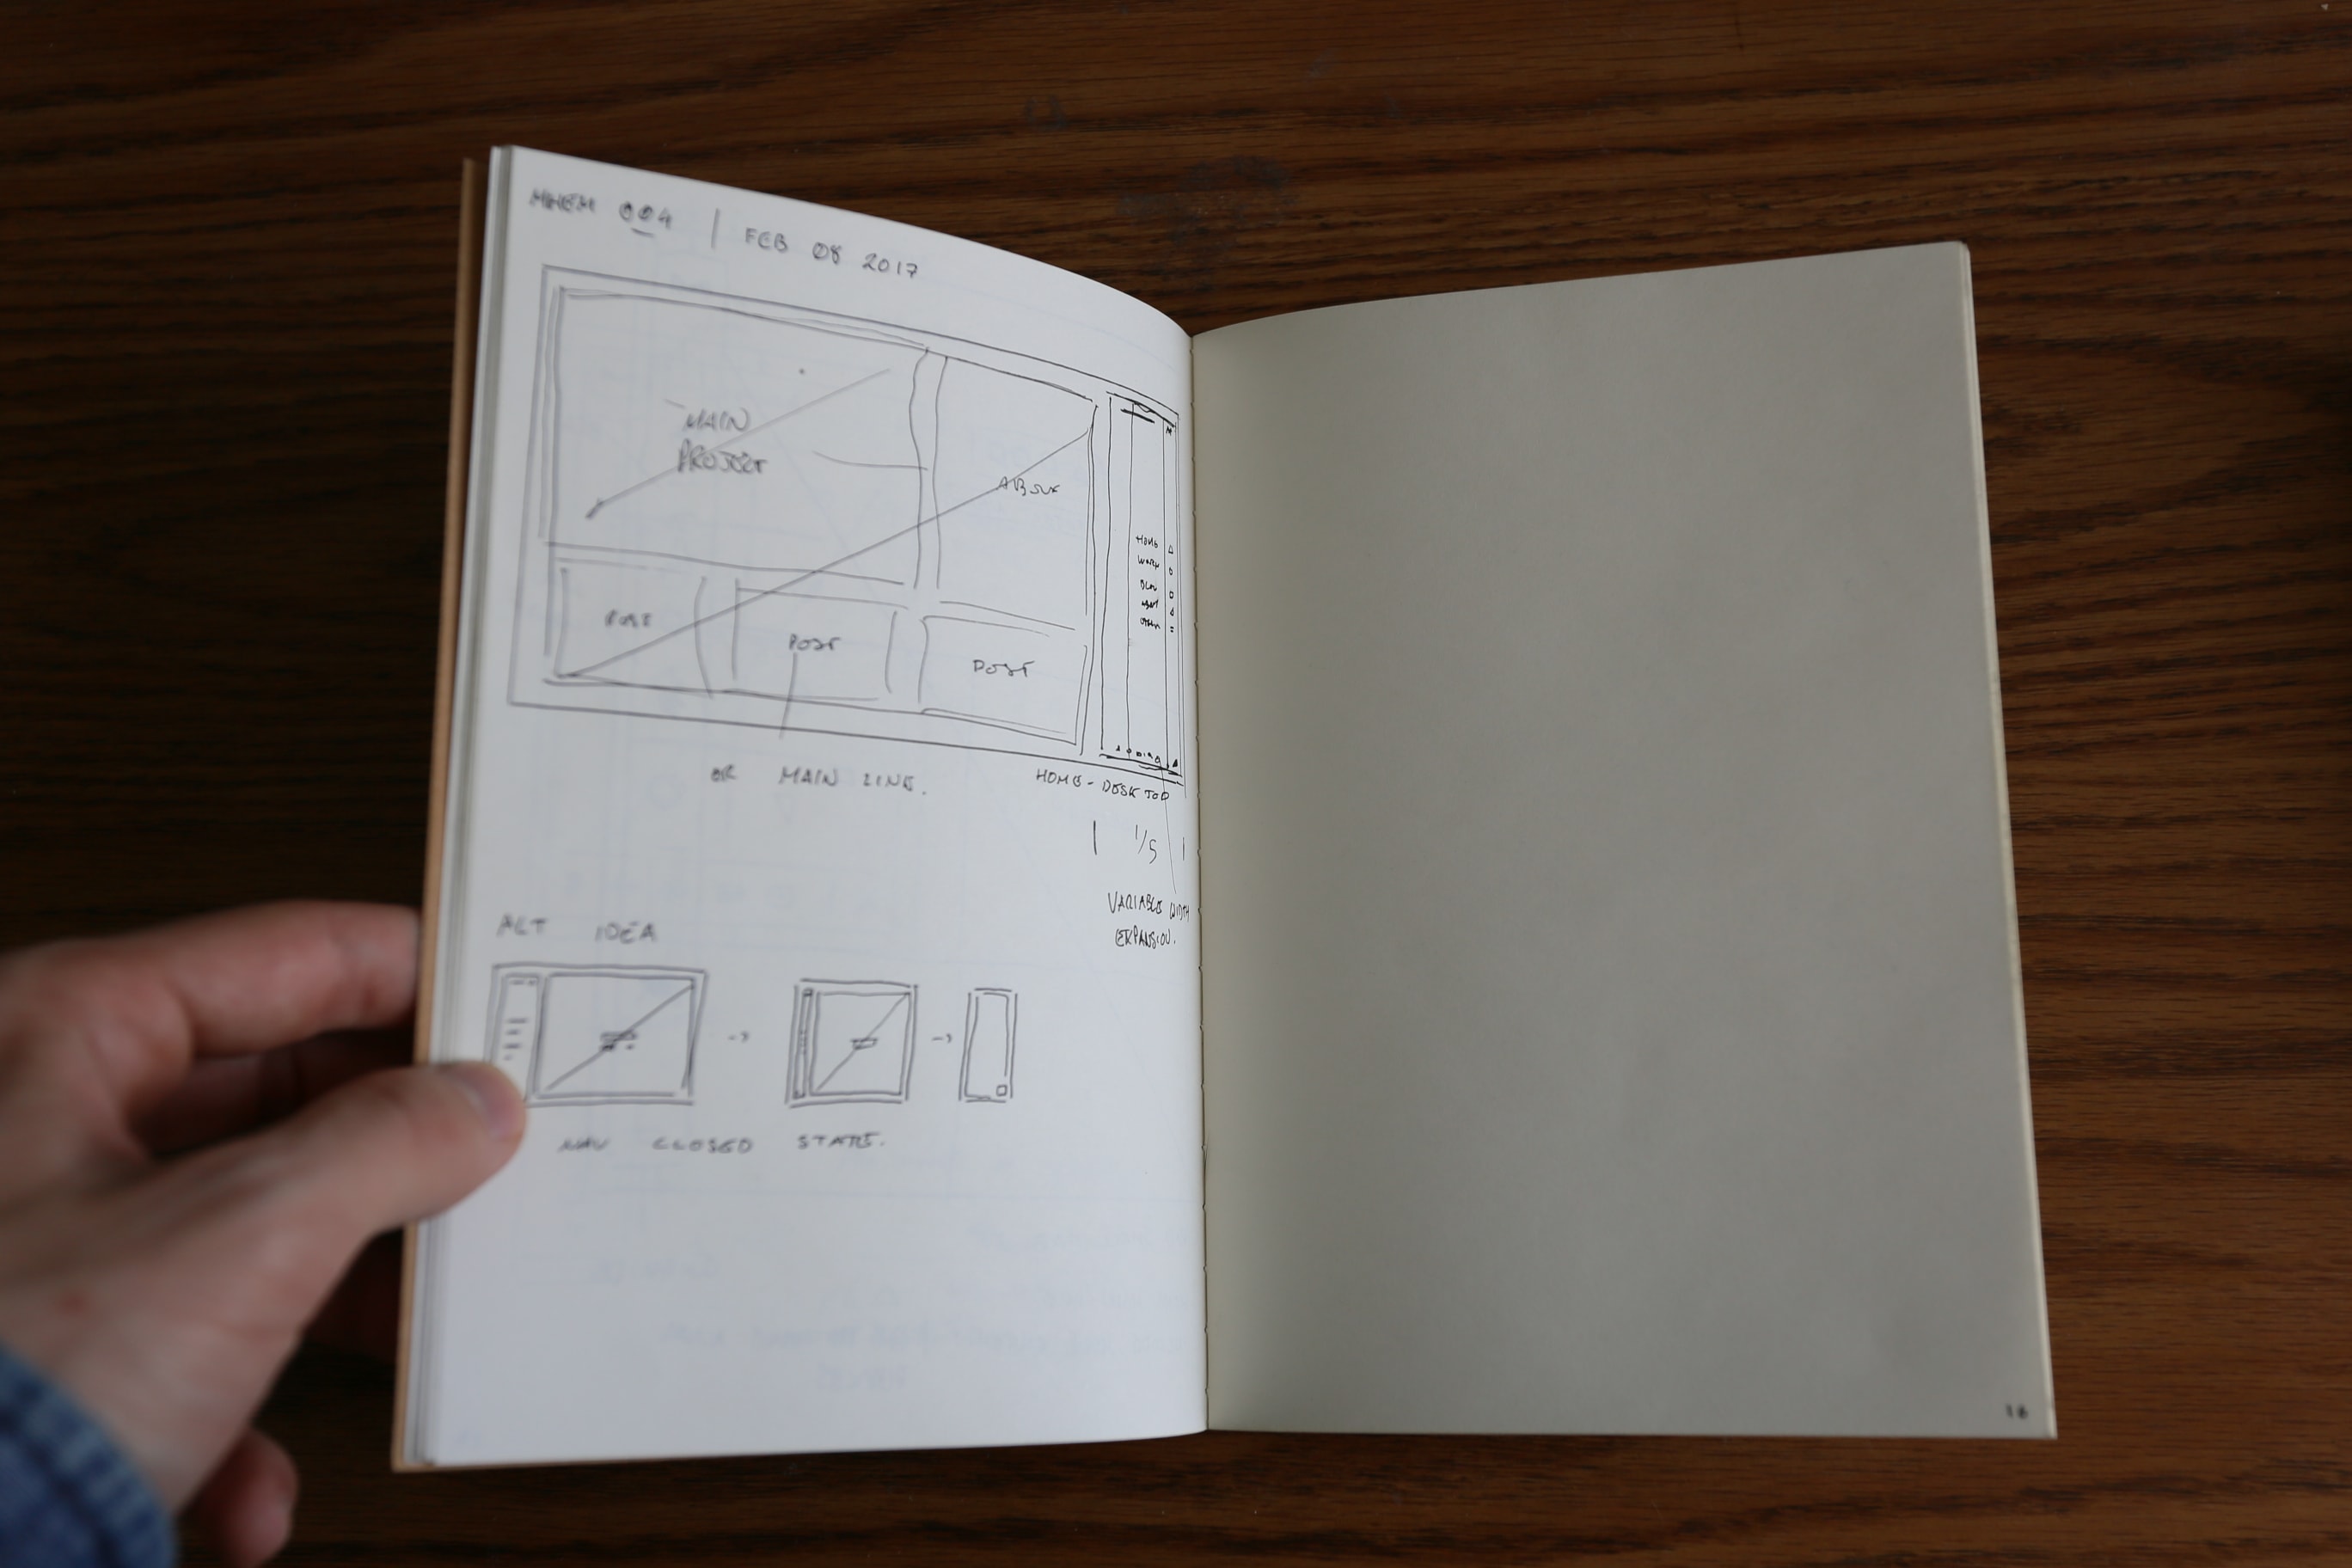 MNEM 004 | FEB 08 2017
MAIN
PROJECT
ABOUT
HOME
WORK
POST
POST
POST
OR MAIN LINE.
HOME - DESKTOP
1/5
VARIABLE WIDTH
EXPANSION.
ALT IDEA
NAV CLOSED STATE.
18